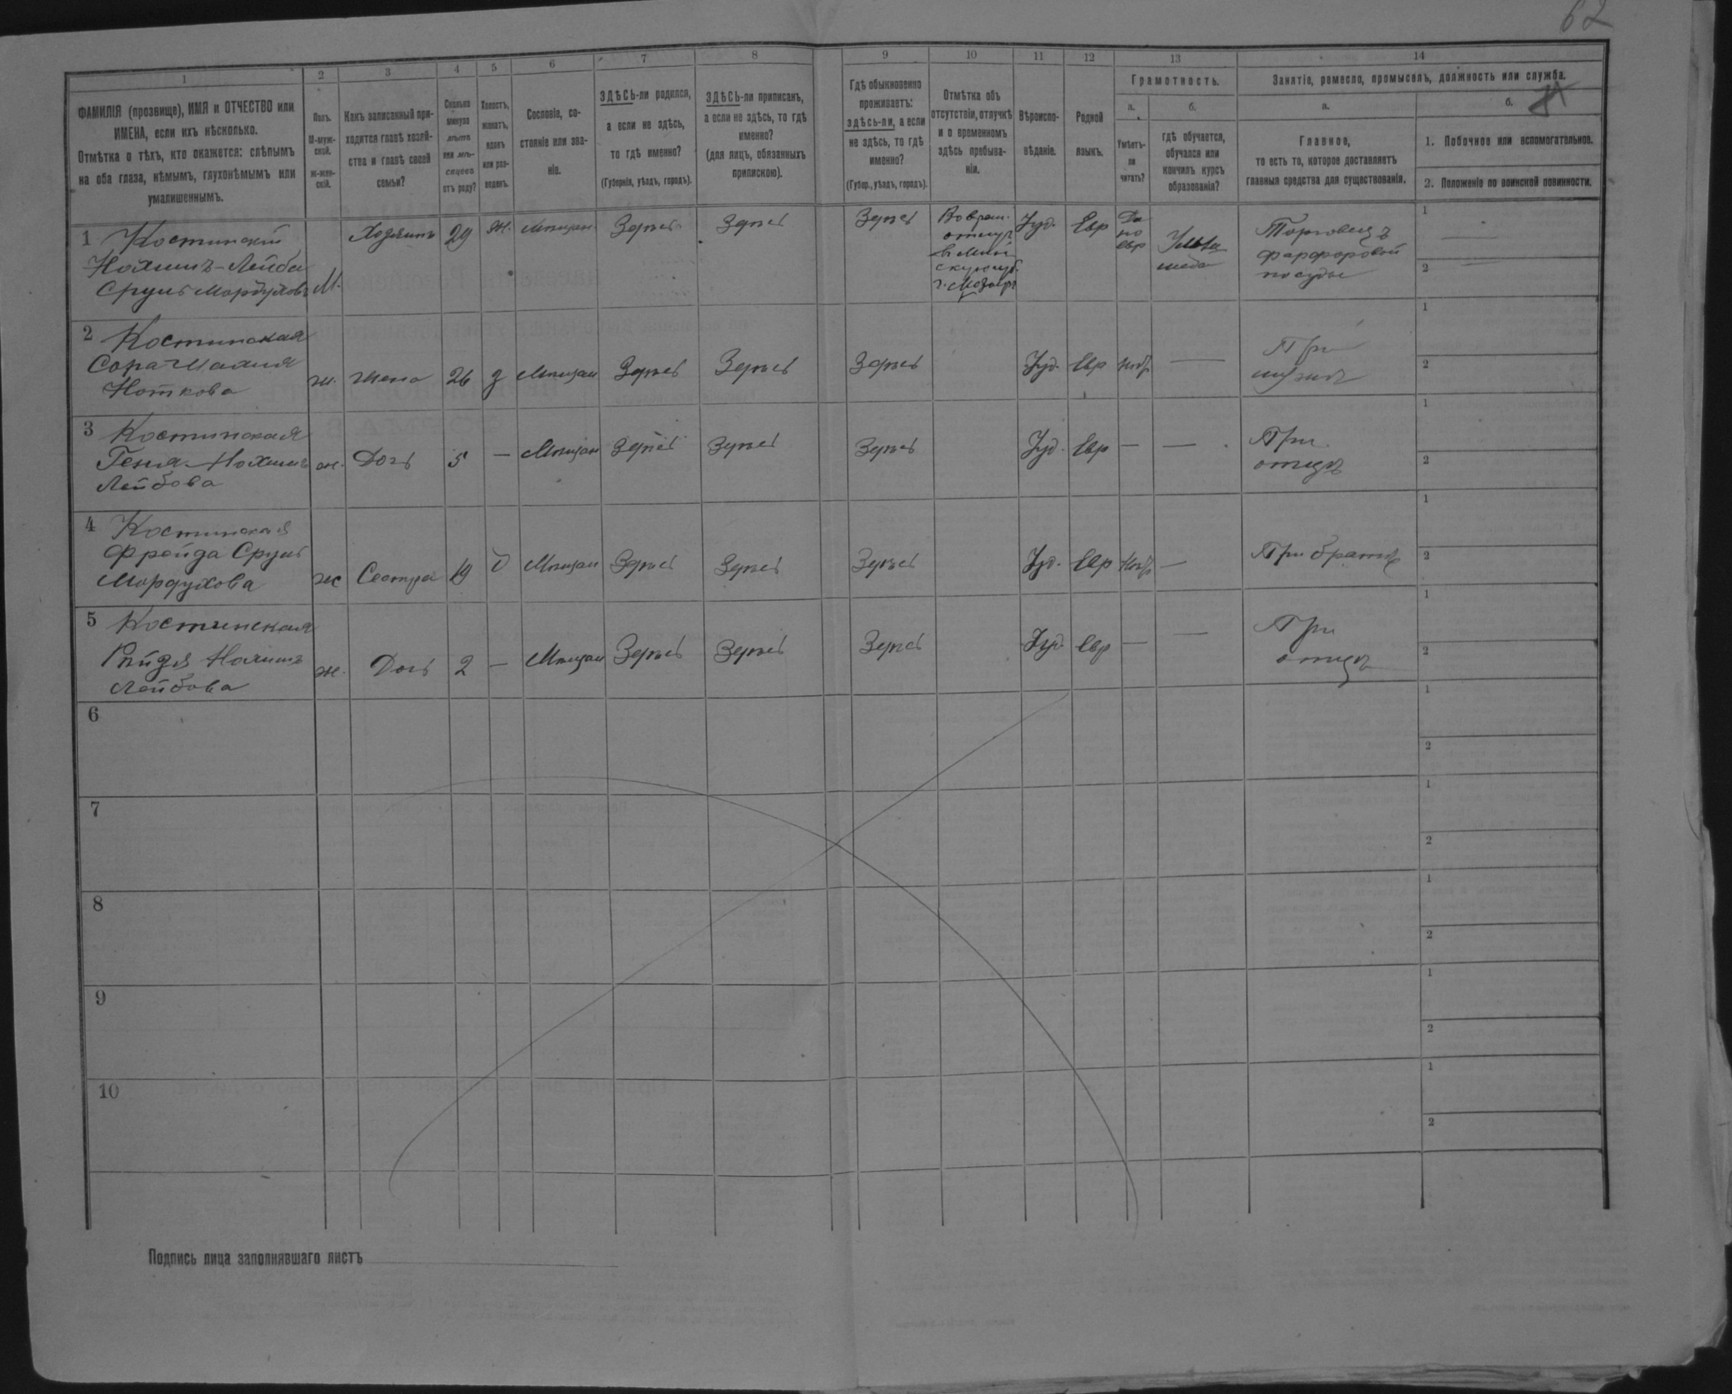 62
1 2 3 4 5 6 7 8 9 10 11 12 13 14
ФАМИЛІЯ (прозвище), ИМЯ и ОТЧЕСТВО или
ИМЕНА, если ихъ нѣсколько.
Отмѣтка о тѣхъ, кто окажется: слѣпымъ
на оба глаза, нѣмымъ, глухонѣмымъ или
умалишеннымъ.
Полъ.
М-муж-
ской.
Ж-жен-
скій.
Какъ записанный при-
ходится главѣ хозяй-
ства и главѣ своей
семьи?
Сколько
минуло
лѣтъ
или мѣ-
сяцевъ
отъ роду?
Холостъ,
женатъ,
вдовъ
или раз-
веденъ.
Сословіе, со-
стояніе или зва-
ніе.
ЗДѢСЬ-ли родился,
а если не здѣсь,
то гдѣ именно?
(Губернія, уѣздъ, городъ).
ЗДѢСЬ-ли приписанъ,
а если не здѣсь, то гдѣ
именно?
(для лицъ, обязанныхъ
припискою).
Гдѣ обыкновенно
проживаетъ:
здѣсь-ли, а если
не здѣсь, то гдѣ
именно?
(Губер., уѣздъ, городъ).
Отмѣтка объ
отсутствіи, отлучкѣ
и о временномъ
здѣсь пребыва-
ніи.
Вѣроиспо-
вѣданіе.
Родной
языкъ.
Грамотность.
а.
Умѣетъ-
ли
читать?
б.
гдѣ обучается,
обучался или
кончилъ курсъ
образованія?
Занятіе, ремесло, промыселъ, должность или служба.
а.
Главное,
то есть то, которое доставляетъ
главныя средства для существованія.
б.
1. Побочное или вспомогательное.
2. Положеніе по воинской повинности.
1 Костинскій
Нохимъ-Лейба
Сруль Мордухов
М.
Хозяинъ
29
ж.
Мѣщан
Здѣсь
Здѣсь
Здѣсь
Во врем.
отлуч
в Мин
скую губ.
г. Мозырь
Іуд.
Евр
Да
по
евр
Торговецъ
фарфоровой
посуды
1
2
2 Костинская
Сора
Ноткова
ж.
жена
26
з
Мѣщан
Здѣсь
Здѣсь
Здѣсь
Іуд.
Евр
—
При
мужѣ
1
2
3 Костинская
Геня Нохим
Лейбова
ж.
Дочь
5
—
Мѣщан
Здѣсь
Здѣсь
Здѣсь
Іуд.
Евр
—
—
При
отцѣ
1
2
4 Костинская
Фрейда Сруль
Мордухова
ж
Сестра
19
Мѣщан
Здѣсь
Здѣсь
Здѣсь
Іуд.
Евр
—
При братѣ
1
2
5 Костинская
Нохимъ
Лейбова
ж.
Дочь
2
—
Мѣщан
Здѣсь
Здѣсь
Здѣсь
Іуд
Евр
—
—
При
отцѣ
1
2
6
1
2
7
1
2
8
1
2
9
1
2
10
1
2
Подпись лица заполнявшаго листъ